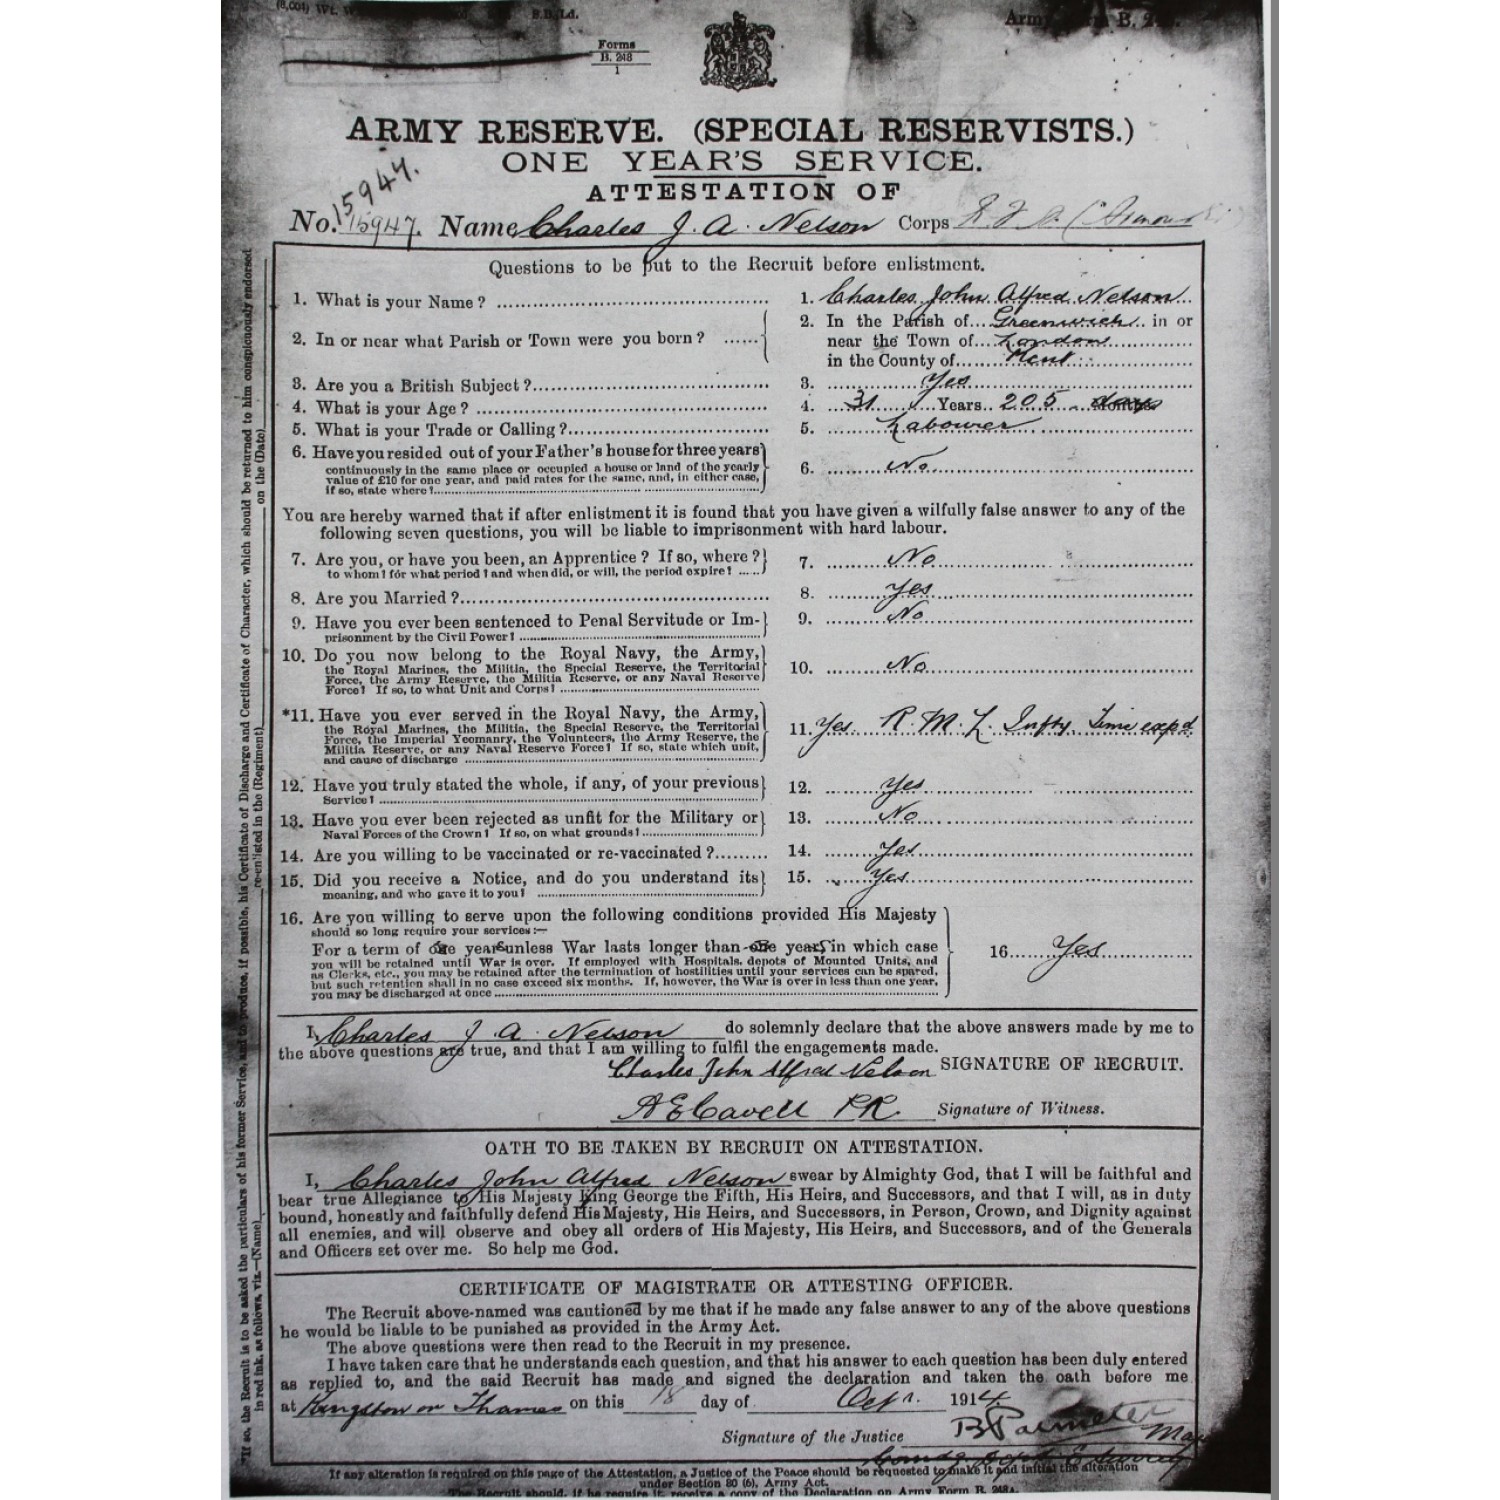 (8,001) Wt. W
B.B. Ld.
Forms
B. 248
1
Army Form B. 248.
ARMY RESERVE. (SPECIAL RESERVISTS.)
ONE YEAR'S SERVICE.
ATTESTATION OF
15947.
No. 15947. Name Charles J. A. Nelson Corps
Questions to be put to the Recruit before enlistment.
1. What is your Name? 1. Charles John Alfred Nelson
2. In or near what Parish or Town were you born? 2. In the Parish of Greenwich in or
near the Town of London
in the County of Kent
3. Are you a British Subject? 3. Yes
4. What is your Age? 4. 31 Years 205 days
5. What is your Trade or Calling? 5. Labourer
6. Have you resided out of your Father's house for three years
continuously in the same place or occupied a house or land of the yearly
value of £10 for one year, and paid rates for the same, and, in either case,
if so, state where? 6. No
You are hereby warned that if after enlistment it is found that you have given a wilfully false answer to any of the
following seven questions, you will be liable to imprisonment with hard labour.
7. Are you, or have you been, an Apprentice? If so, where? 7. No
to whom? for what period? and when did, or will, the period expire?
8. Are you Married? 8. Yes
9. Have you ever been sentenced to Penal Servitude or Im- 9. No
prisonment by the Civil Power?
10. Do you now belong to the Royal Navy, the Army,
the Royal Marines, the Militia, the Special Reserve, the Territorial 10. No
Force, the Army Reserve, the Militia Reserve, or any Naval Reserve
Force? If so, to what Unit and Corps?
*11. Have you ever served in the Royal Navy, the Army,
the Royal Marines, the Militia, the Special Reserve, the Territorial 11. Yes R. M. L. Infty. Time expd.
Force, the Imperial Yeomanry, the Volunteers, the Army Reserve, the
Militia Reserve, or any Naval Reserve Force? If so, state which unit,
and cause of discharge
12. Have you truly stated the whole, if any, of your previous 12. Yes
Service?
13. Have you ever been rejected as unfit for the Military or 13. No
Naval Forces of the Crown? If so, on what grounds?
14. Are you willing to be vaccinated or re-vaccinated? 14. Yes
15. Did you receive a Notice, and do you understand its 15. Yes
meaning, and who gave it to you?
16. Are you willing to serve upon the following conditions provided His Majesty
should so long require your services:—
For a term of years unless War lasts longer than years, in which case 16. Yes
you will be retained until War is over. If employed with Hospitals, depots of Mounted Units, and
as Clerks, etc., you may be retained after the termination of hostilities until your services can be spared,
but such retention shall in no case exceed six months. If, however, the War is over in less than one year,
you may be discharged at once
I, Charles J. A. Nelson do solemnly declare that the above answers made by me to
the above questions are true, and that I am willing to fulfil the engagements made.
Charles John Alfred Nelson SIGNATURE OF RECRUIT.
A E Cavell Signature of Witness.
OATH TO BE TAKEN BY RECRUIT ON ATTESTATION.
I, Charles John Alfred Nelson swear by Almighty God, that I will be faithful and
bear true Allegiance to His Majesty King George the Fifth, His Heirs, and Successors, and that I will, as in duty
bound, honestly and faithfully defend His Majesty, His Heirs, and Successors, in Person, Crown, and Dignity against
all enemies, and will observe and obey all orders of His Majesty, His Heirs, and Successors, and of the Generals
and Officers set over me. So help me God.
CERTIFICATE OF MAGISTRATE OR ATTESTING OFFICER.
The Recruit above-named was cautioned by me that if he made any false answer to any of the above questions
he would be liable to be punished as provided in the Army Act.
The above questions were then read to the Recruit in my presence.
I have taken care that he understands each question, and that his answer to each question has been duly entered
as replied to, and the said Recruit has made and signed the declaration and taken the oath before me
at Kingston on Thames on this 18 day of 1914.
Signature of the Justice
If any alteration is required on this page of the Attestation, a Justice of the Peace should be requested to make it and initial the alteration
under Section 80 (6), Army Act.
The Recruit should, if he require it, receive a copy of the Declaration on Army Form B. 248A.
*If so, the Recruit is to be asked the particulars of his former Service, and to produce, if possible, his Certificate of Discharge and Certificate of Character, which should be returned to him conspicuously endorsed
in red ink, as follows, viz.—(Name) re-enlisted in the (Regiment) on the (Date)